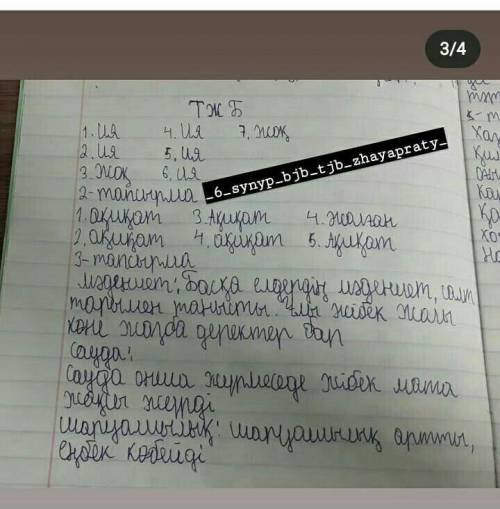 3/4
ТЖБ
1. Ия 4. Ия 7. Жоқ
2. Ия 5. Ия
3. Жоқ 6. Ия
_6_synyp_bjb_tjb_zhayapraty_
2-тапсырма
1. ақиқат 3. Ақиқат 4. Жалған
2. ақиқат 4. ақиқат 5. Ақиқат
3-тапсырма
Мәдениет: Басқа елдердің мәдениет, салт
тарымен танысты. Ұлы жібек жалы
көне жазба деректер бар
Сауда:
Сауда онша жүрмеседе жібек мата
жақсы жүрді
Шаруашылық: шаруашылық артты,
еңбек көбейді